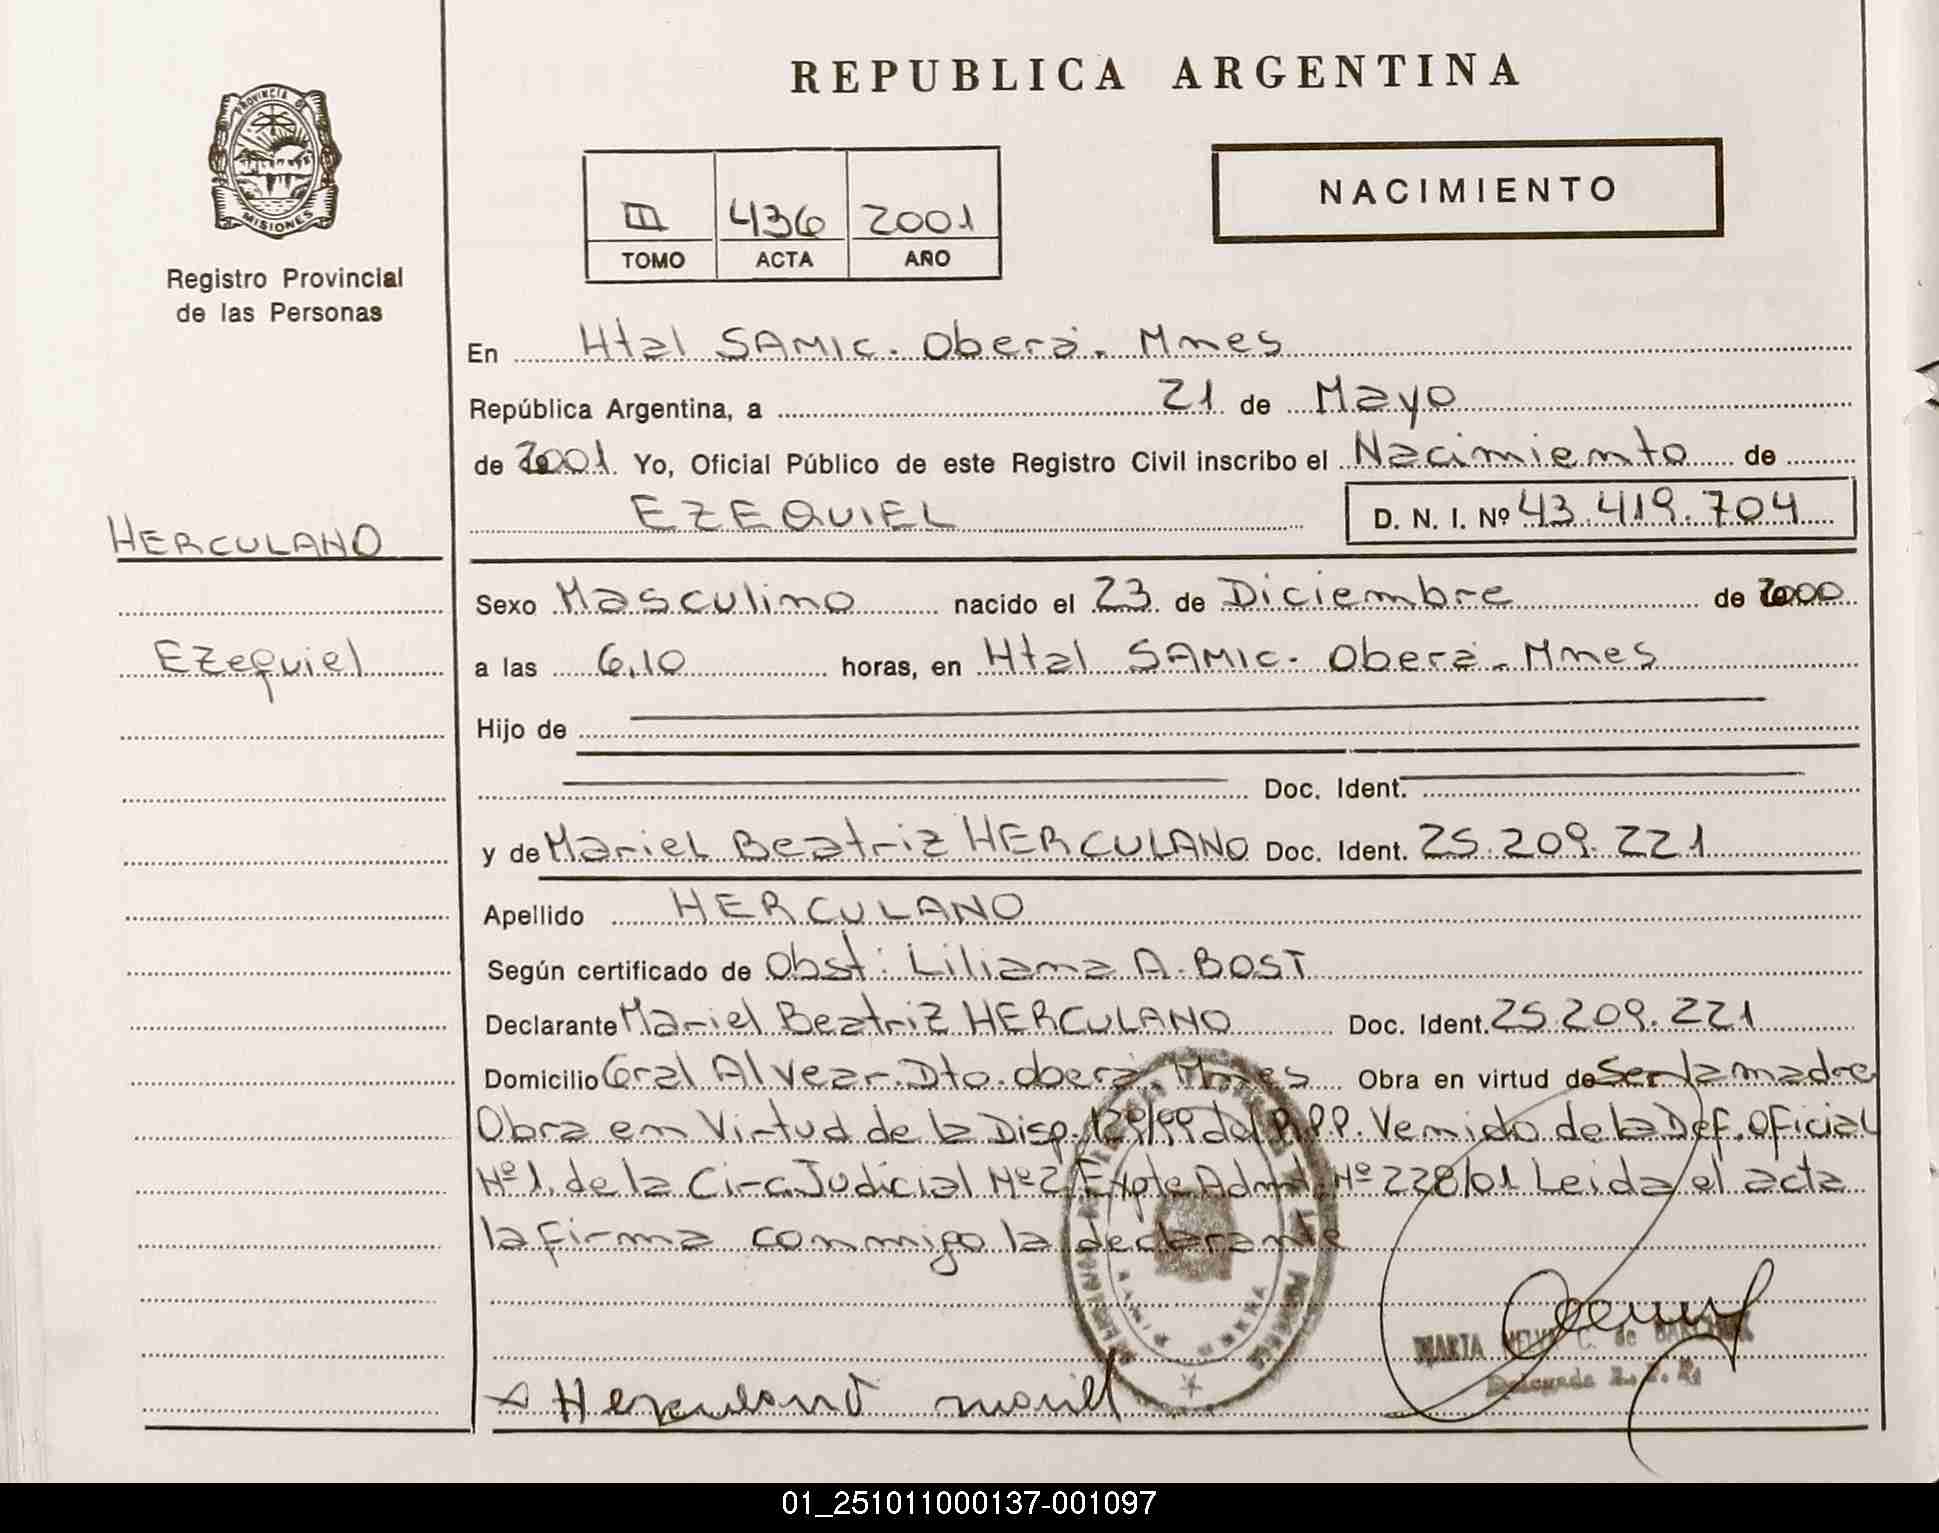 REPUBLICA ARGENTINA
PROVINCIA DE
MISIONES
Registro Provincial
de las Personas
III 436 2001
TOMO ACTA AÑO
NACIMIENTO
En Htal SAMIC. Oberá. Mnes
República Argentina, a 21 de Mayo
de 2001. Yo, Oficial Público de este Registro Civil inscribo el Nacimiento de
EZEQUIEL D. N. I. Nº 43.419.704
HERCULANO
Sexo Masculino nacido el 23 de Diciembre de 2000
Ezequiel
a las 6,10 horas, en Htal SAMIC. Oberá. Mnes
Hijo de
Doc. Ident.
y de Mariel Beatriz HERCULANO Doc. Ident. 25.209.221
Apellido HERCULANO
Según certificado de Obst: Liliana A. BOST
Declarante Mariel Beatriz HERCULANO Doc. Ident. 25.209.221
Domicilio Gral Alvear. Dto. Oberá. Mnes Obra en virtud de Ser la madre
Obra en Virtud de la Disp. 129/99 del R.P.P. Venido de la Def. Oficial
Nº 1. de la Circ. Judicial Nº 2 Expte Admt. Nº 228/01 Leida el acta
la firma conmigo la declarante
MARIA C. de
Delegada R. P. P.
Herculano Mariel
01_251011000137-001097